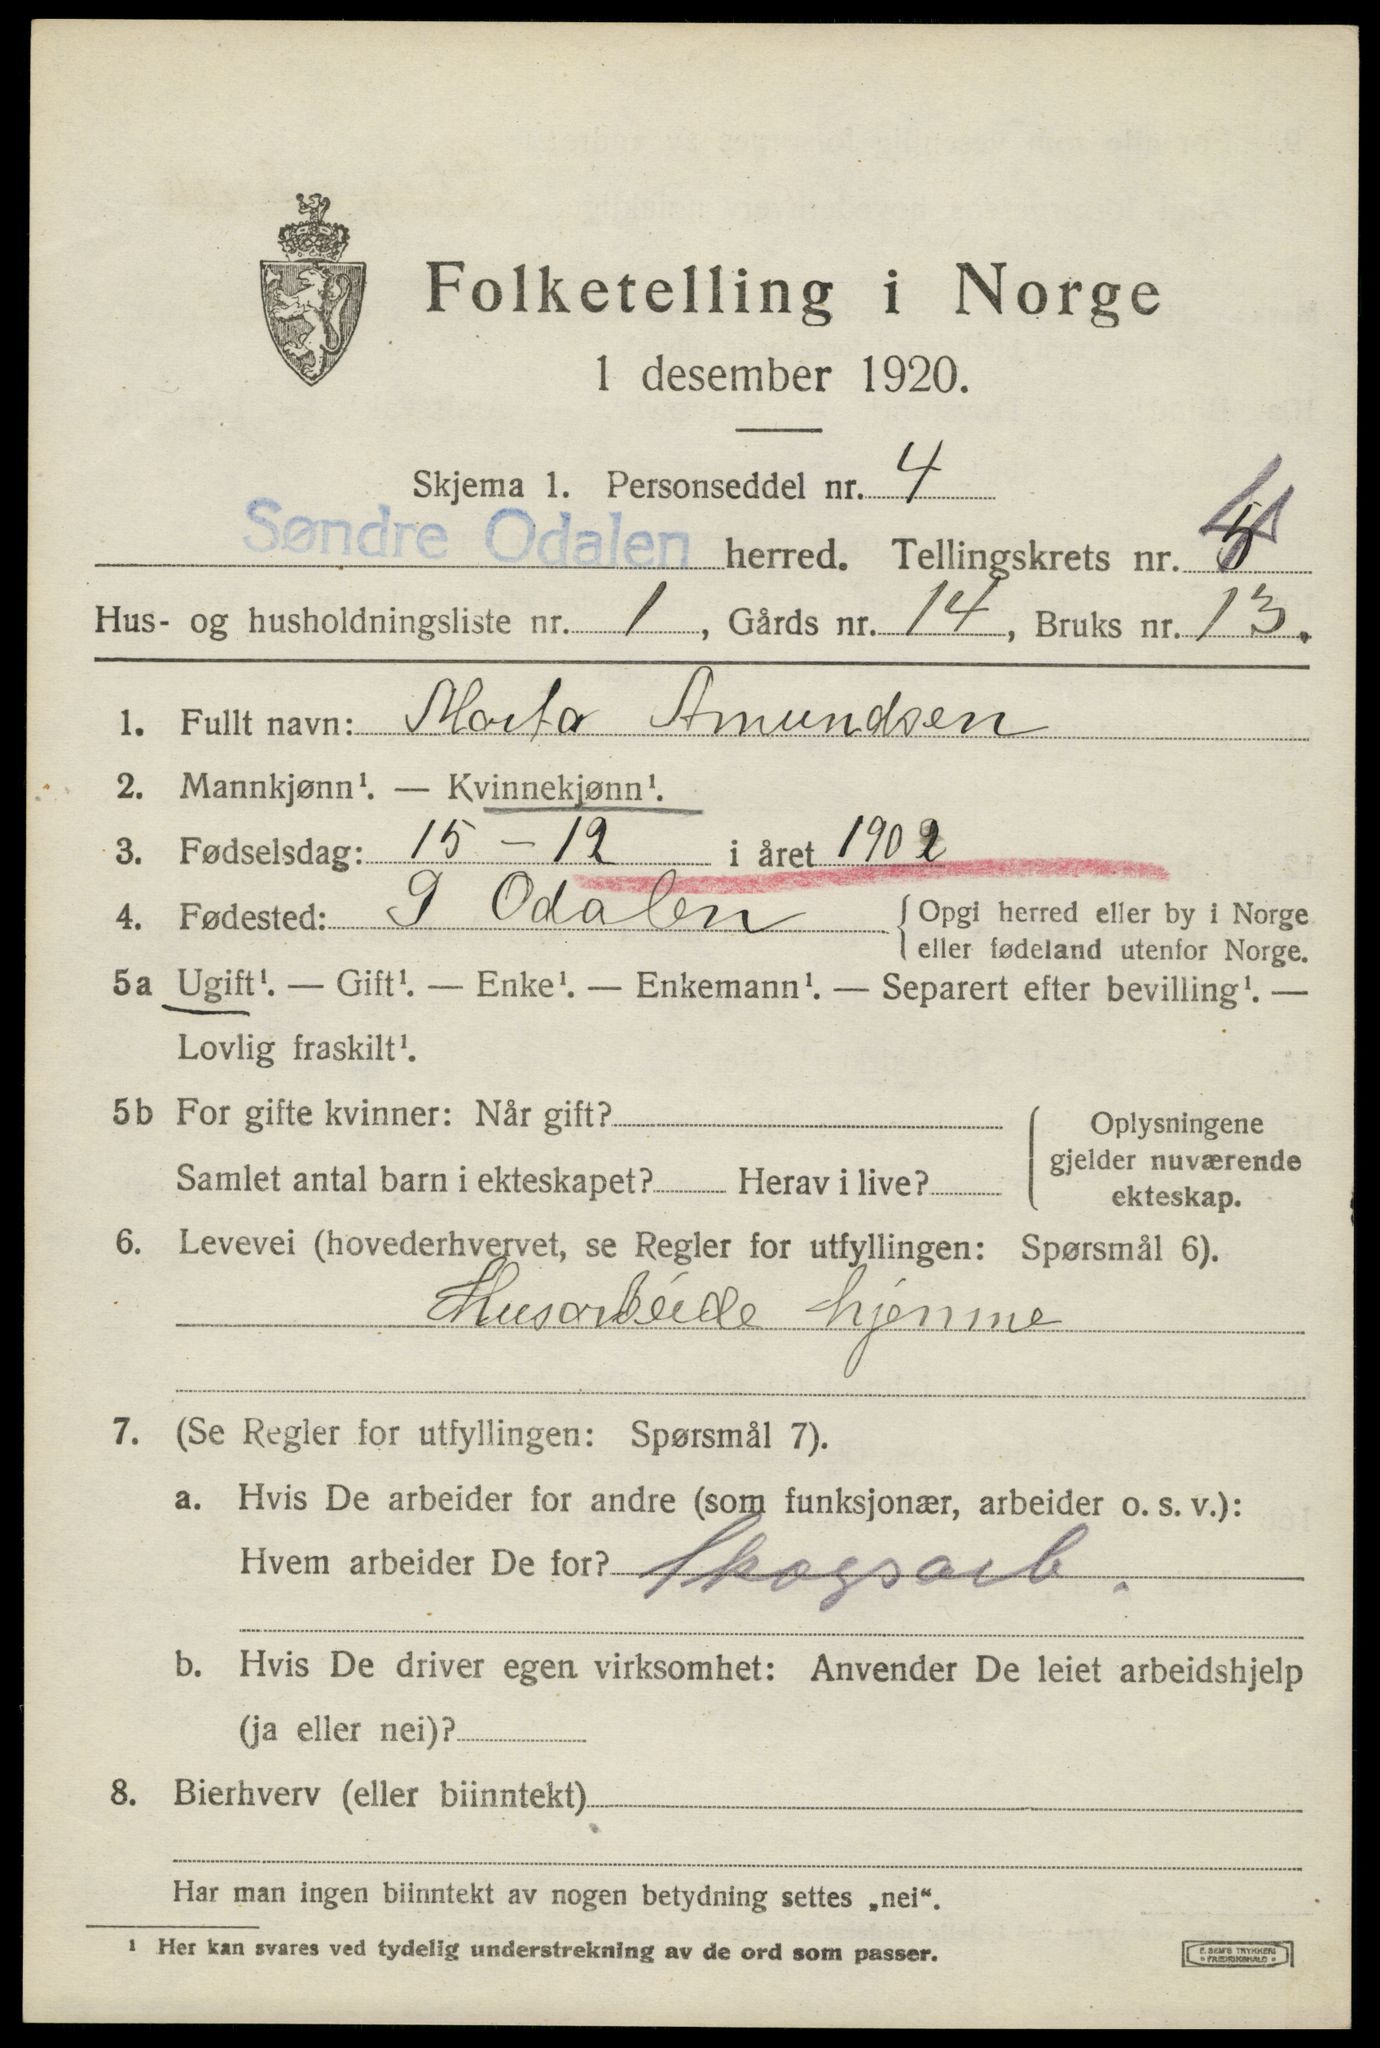 Folketelling i Norge
1 desember 1920.
Skjema 1. Personseddel nr. 4
Søndre Odalen herred. Tellingskrets nr. 5
Hus- og husholdningsliste nr. 1, Gårds nr. 14, Bruks nr. 13.
1. Fullt navn: Marta Amundsen
2. Mannkjønn¹. — Kvinnekjønn¹.
3. Fødselsdag: 15 - 12 i året 1902
4. Fødested: S Odalen {Opgi herred eller by i Norge
eller fødeland utenfor Norge.
5a Ugift¹. — Gift¹. — Enke¹. — Enkemann¹. — Separert efter bevilling¹. —
Lovlig fraskilt¹.
5b For gifte kvinner: Når gift?
Samlet antal barn i ekteskapet? Herav i live?
{Oplysningene
gjelder nuværende
ekteskap.
6. Levevei (hovederhvervet, se Regler for utfyllingen: Spørsmål 6).
Husarbeide hjemme
7. (Se Regler for utfyllingen: Spørsmål 7).
a. Hvis De arbeider for andre (som funksjonær, arbeider o. s. v.):
Hvem arbeider De for? Skogsarb.
b. Hvis De driver egen virksomhet: Anvender De leiet arbeidshjelp
(ja eller nei)?
8. Bierhverv (eller biinntekt)
Har man ingen biinntekt av nogen betydning settes „nei“.
¹ Her kan svares ved tydelig understrekning av de ord som passer.
E. SEM'S TRYKKERI
FREDRIKSHALD